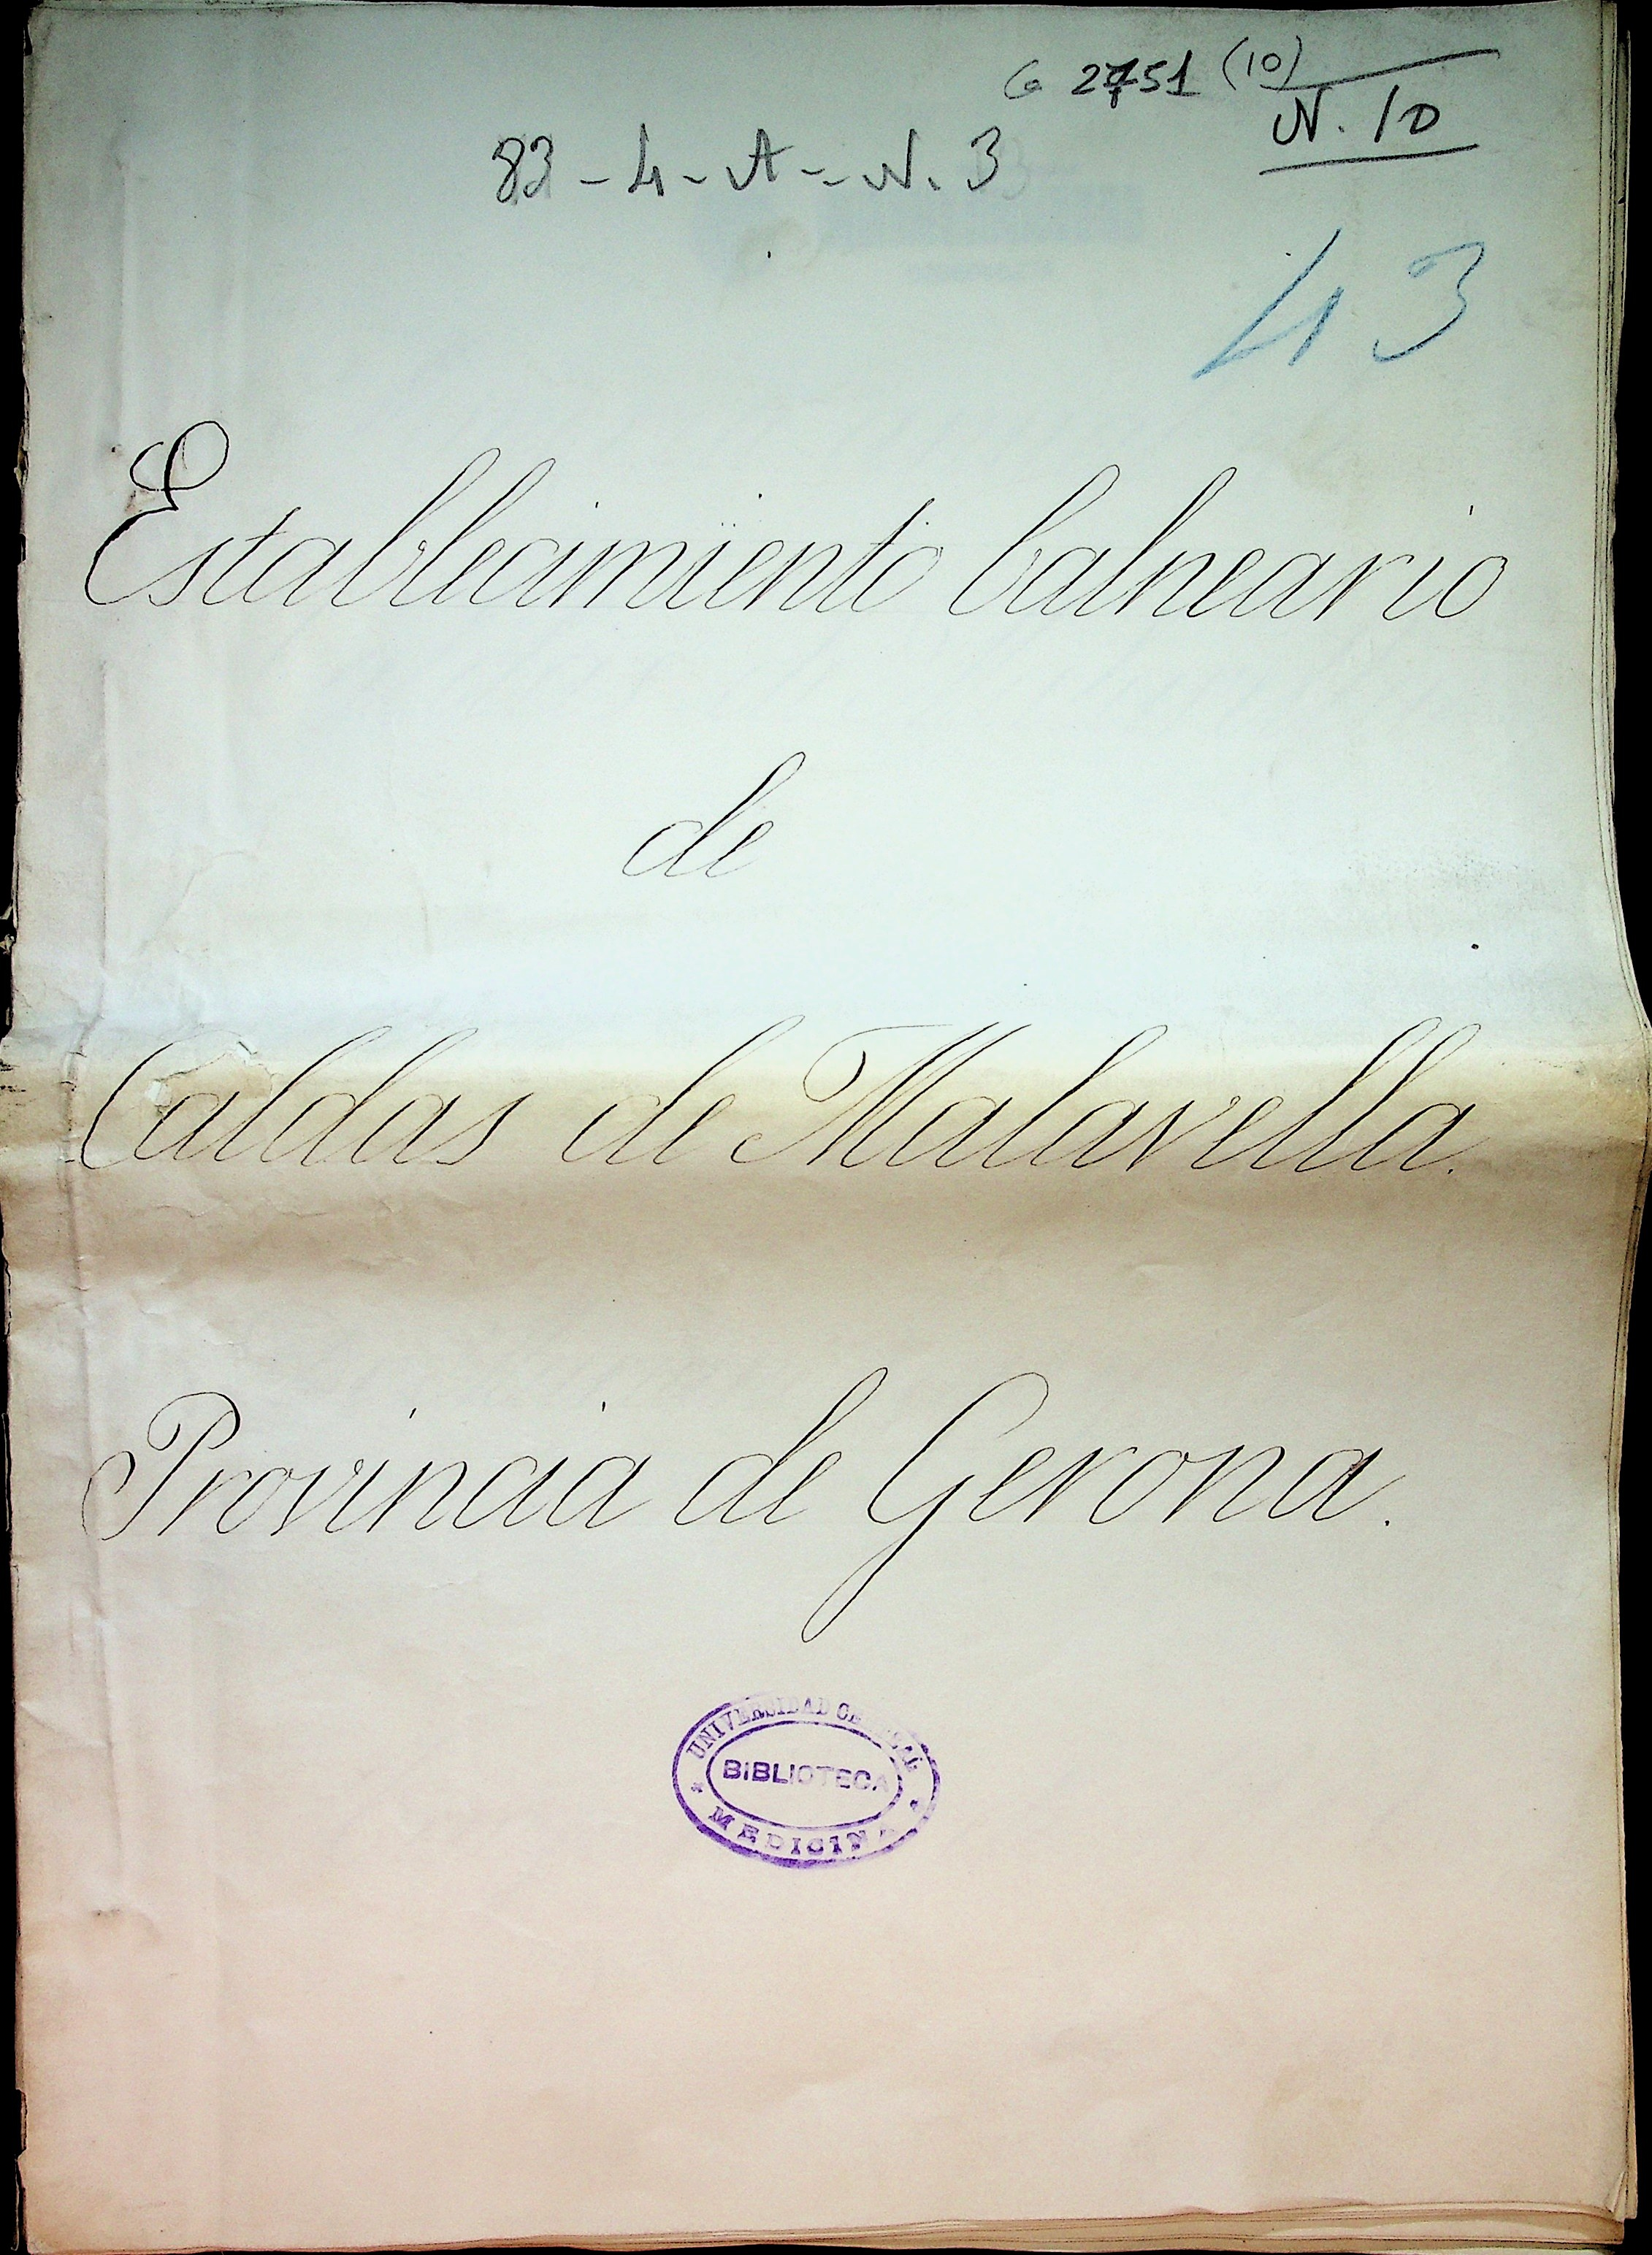 Ca 2751 (10)
N. 10
83 - 4 - A - N. 3
43
Establecimiento balneario
de
Caldas de Malavella.
Provincia de Gerona.
UNIVERSIDAD CENTRAL
BIBLIOTECA
MEDICINA